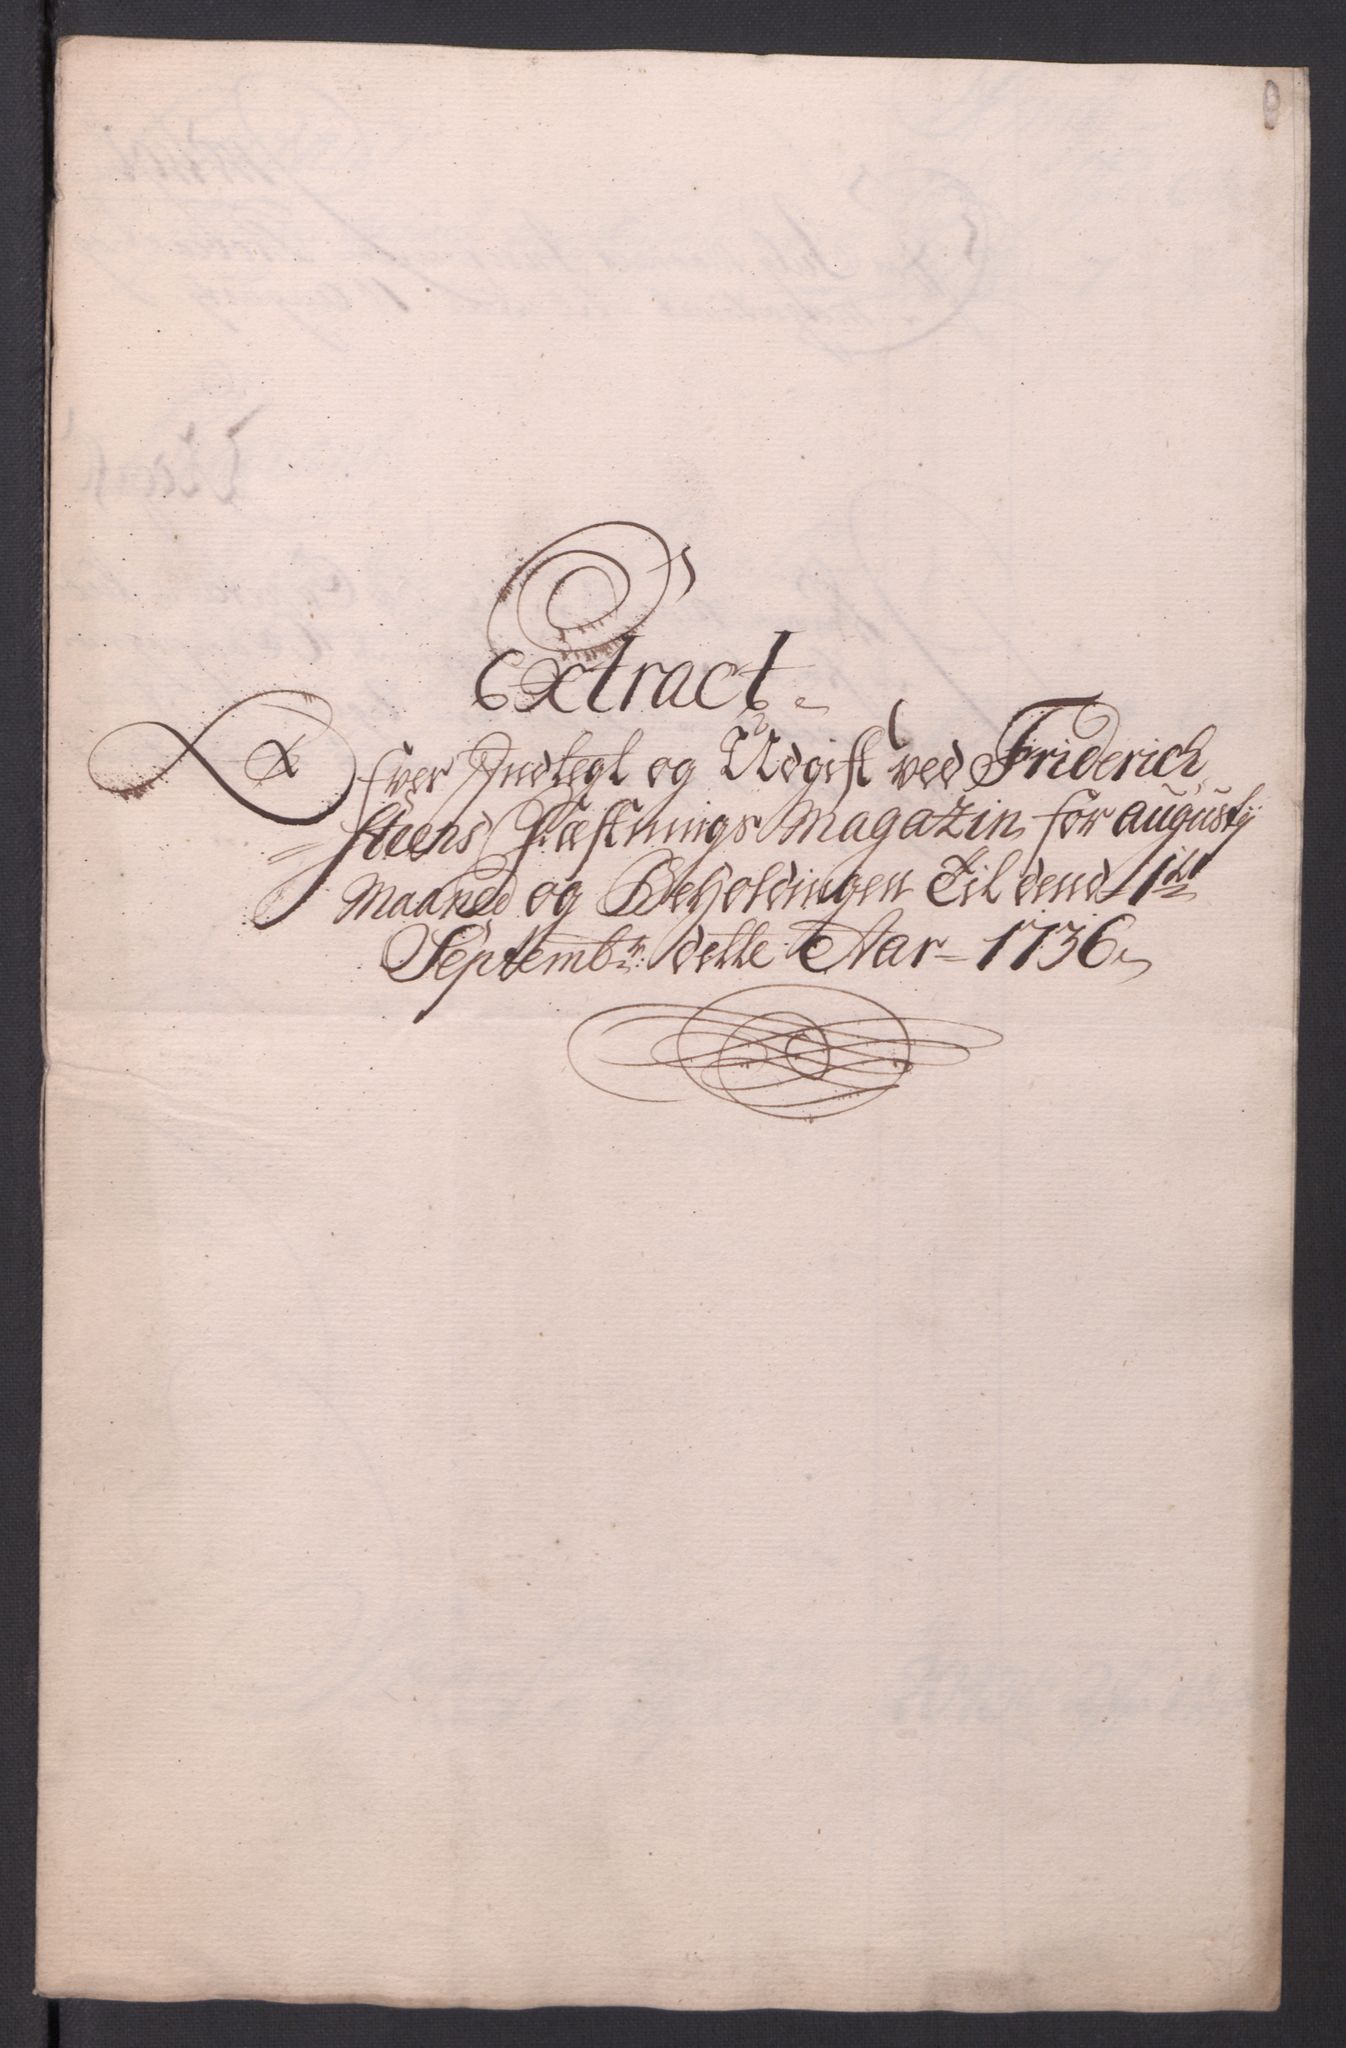 Extract
Ofver Indtegt og Udgift ved Friderich
steens Fæstnings Magazin for Augusty
Maaned og Beholdingen Til dend 1ste
Septembr: dette Aar 1736